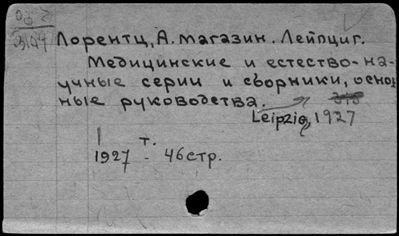 Лорентц, А. магазин. Лейпциг.
Медицинские и естество-на-
учные серии и сборники, основ
ные руководства.
Leipzig, 1927
1 т.
1927 - 46стр.